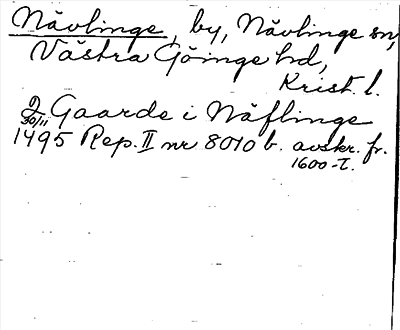 Nävlinge, by, Nävlinge sn,
Västra Göinge hd,
Krist. l.
2 Gaarde i Näflinge
30/11
1495 Rep. II nr 8010 b. avskr. fr.
1600-t.